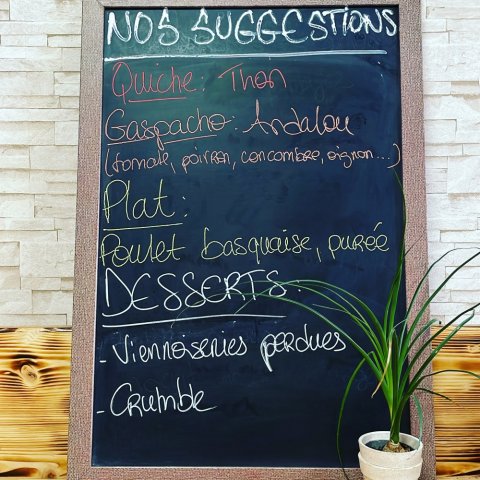 NOS SUGGESTIONS
Quiche: Thon
Gaspacho: Andalou
(tomate, poivron, concombre, oignon...)
Plat:
Poulet basquaise, purée
DESSERTS:
- Viennoiseries perdues
- Crumble